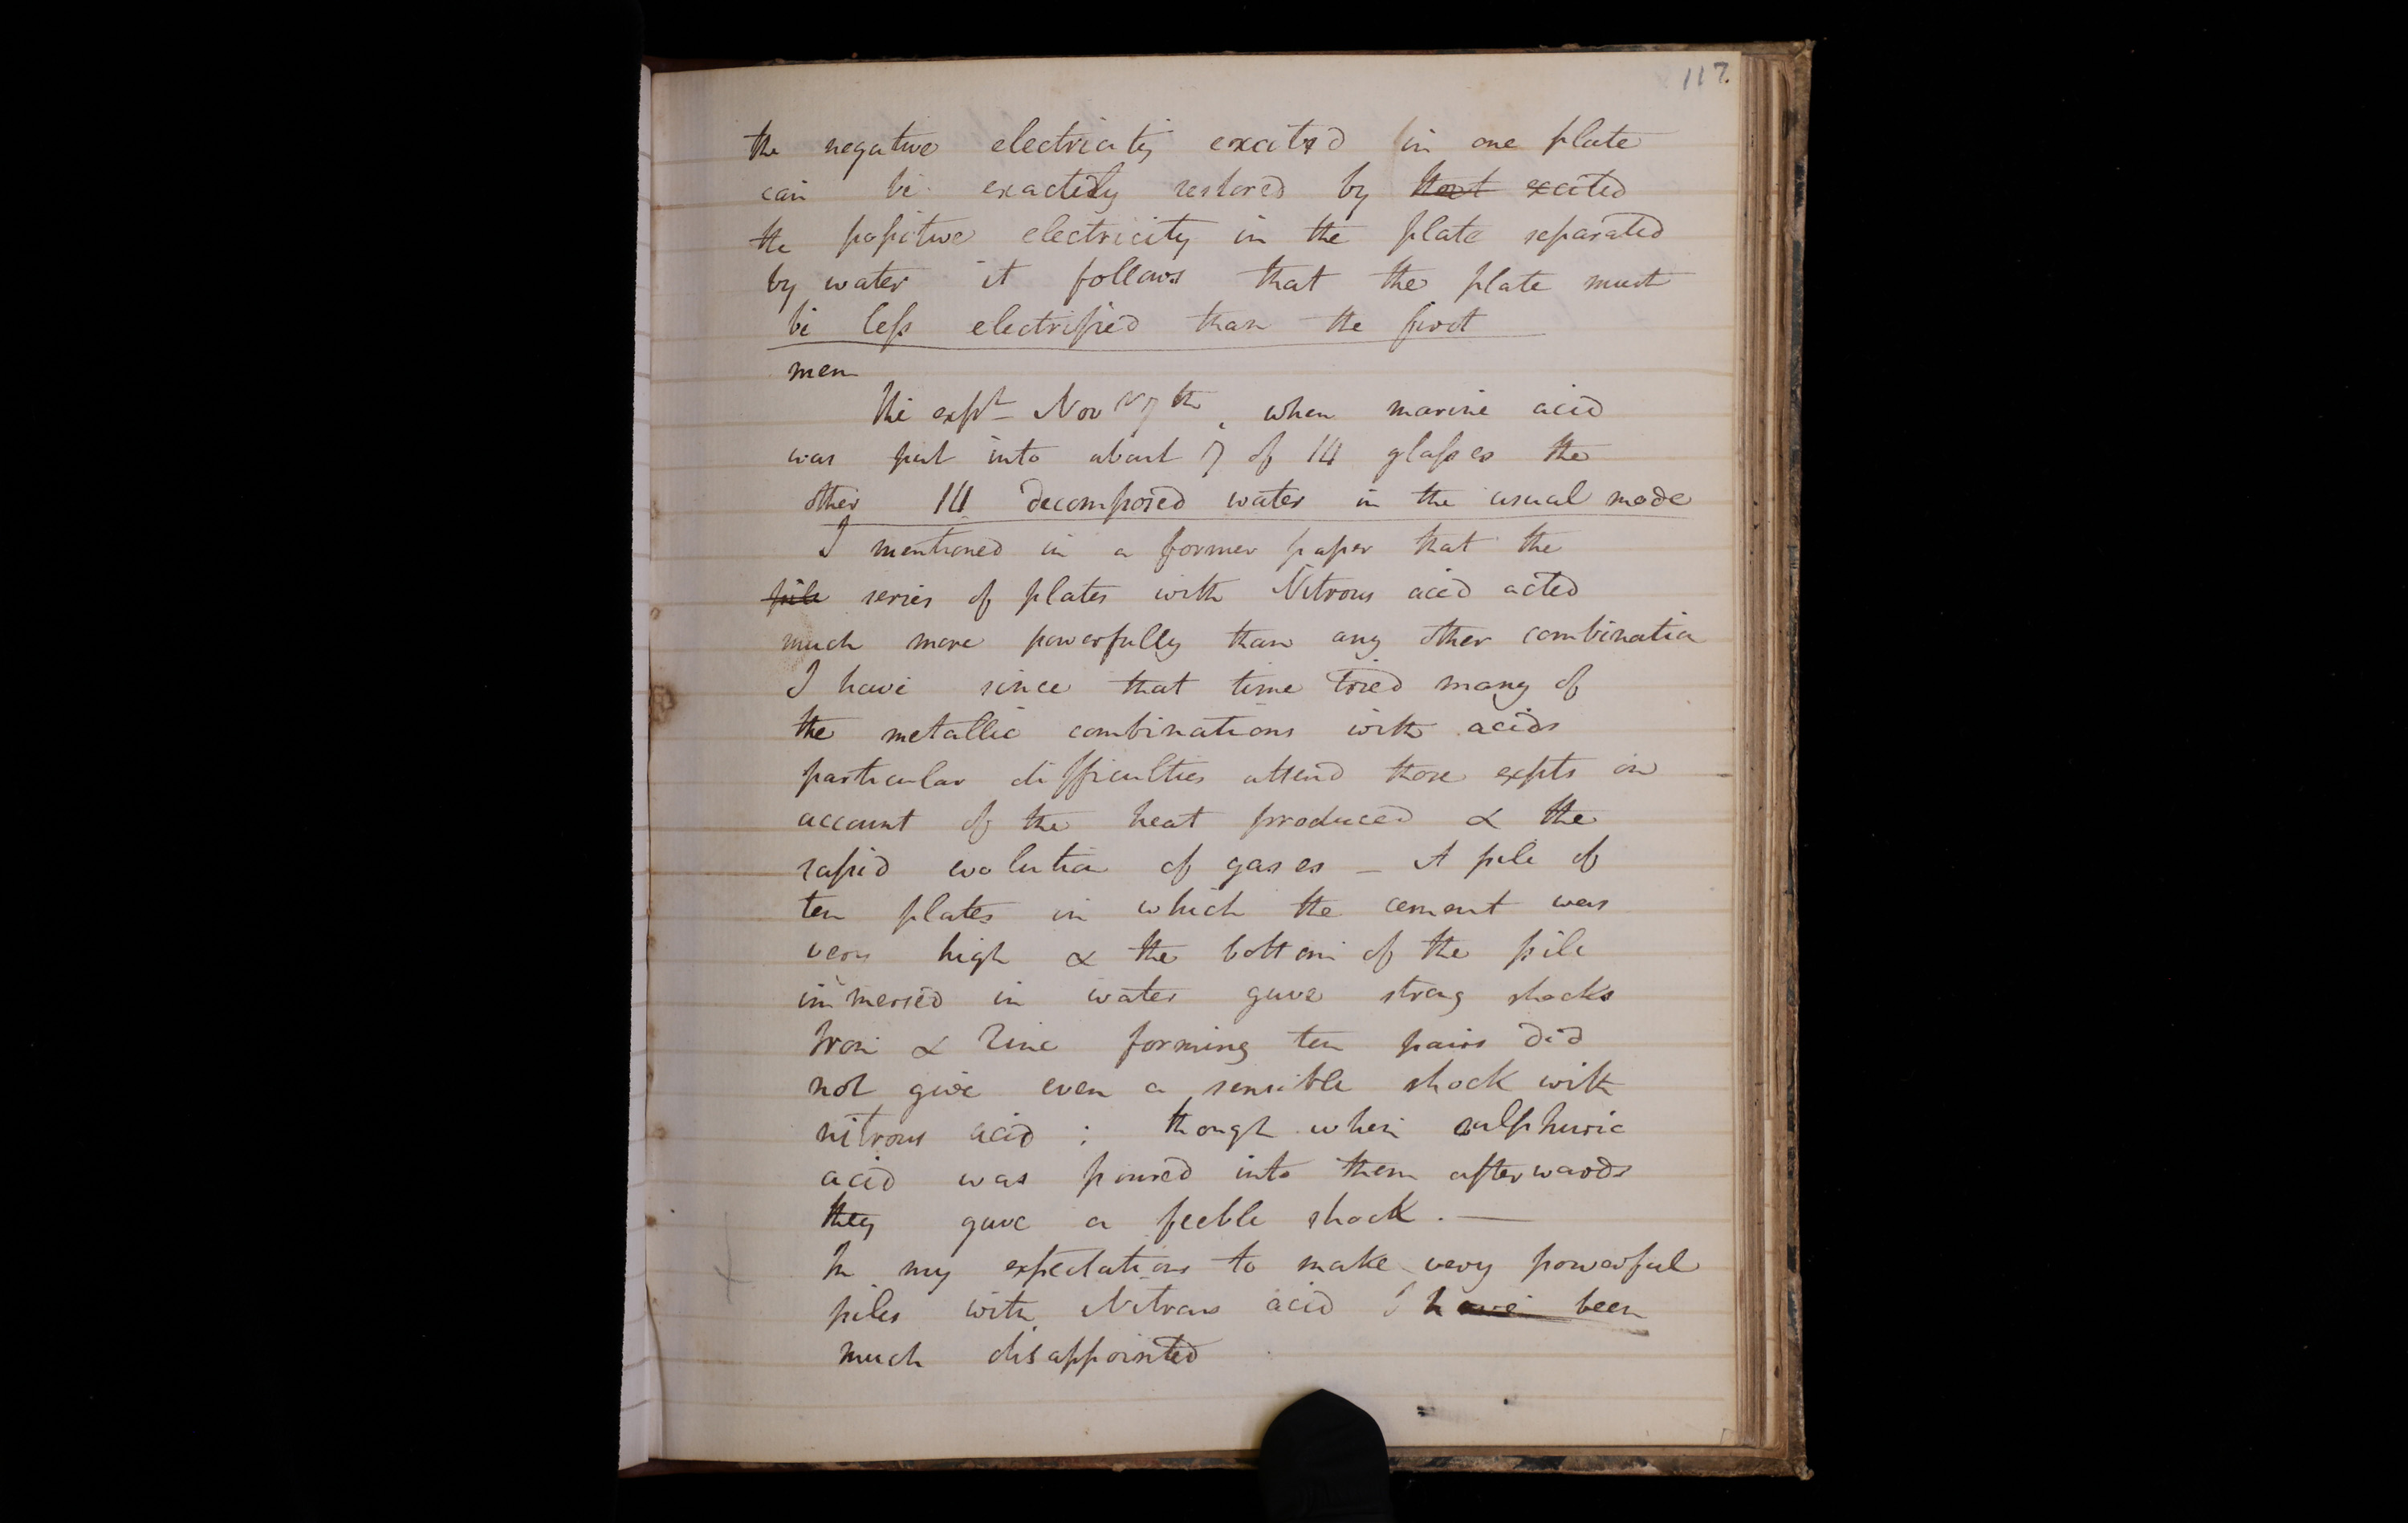 117.
the negative electricity excited in one plate
can be exactly restored by that excited
the positive electricity in the plate separated
by water it follows that the plate must
be less electrified than the first
mem
The expt Nov 17th, when marine acid
was put into about 7 of 14 glasses the
other 14 decomposed water in the usual mode
I mentioned in a former paper that the
pile series of plates with Nitrous acid acted
much more powerfully than any other combination
I have since that time tried many of
the metallic combinations with acids
particular difficulties attend those expts on
account of the heat produced & the
rapid evolution of gases – A pile of
ten plates in which the cement was
very high & the bottom of the pile
immersed in water gave strong shocks
Iron & Zinc forming ten pairs did
not give even a sensible shock with
nitrous acid : though when sulphuric
acid was poured into them afterwards
they gave a feeble shock. —
In my expectations to make very powerful
piles with Nitrous acid I have been
much disappointed